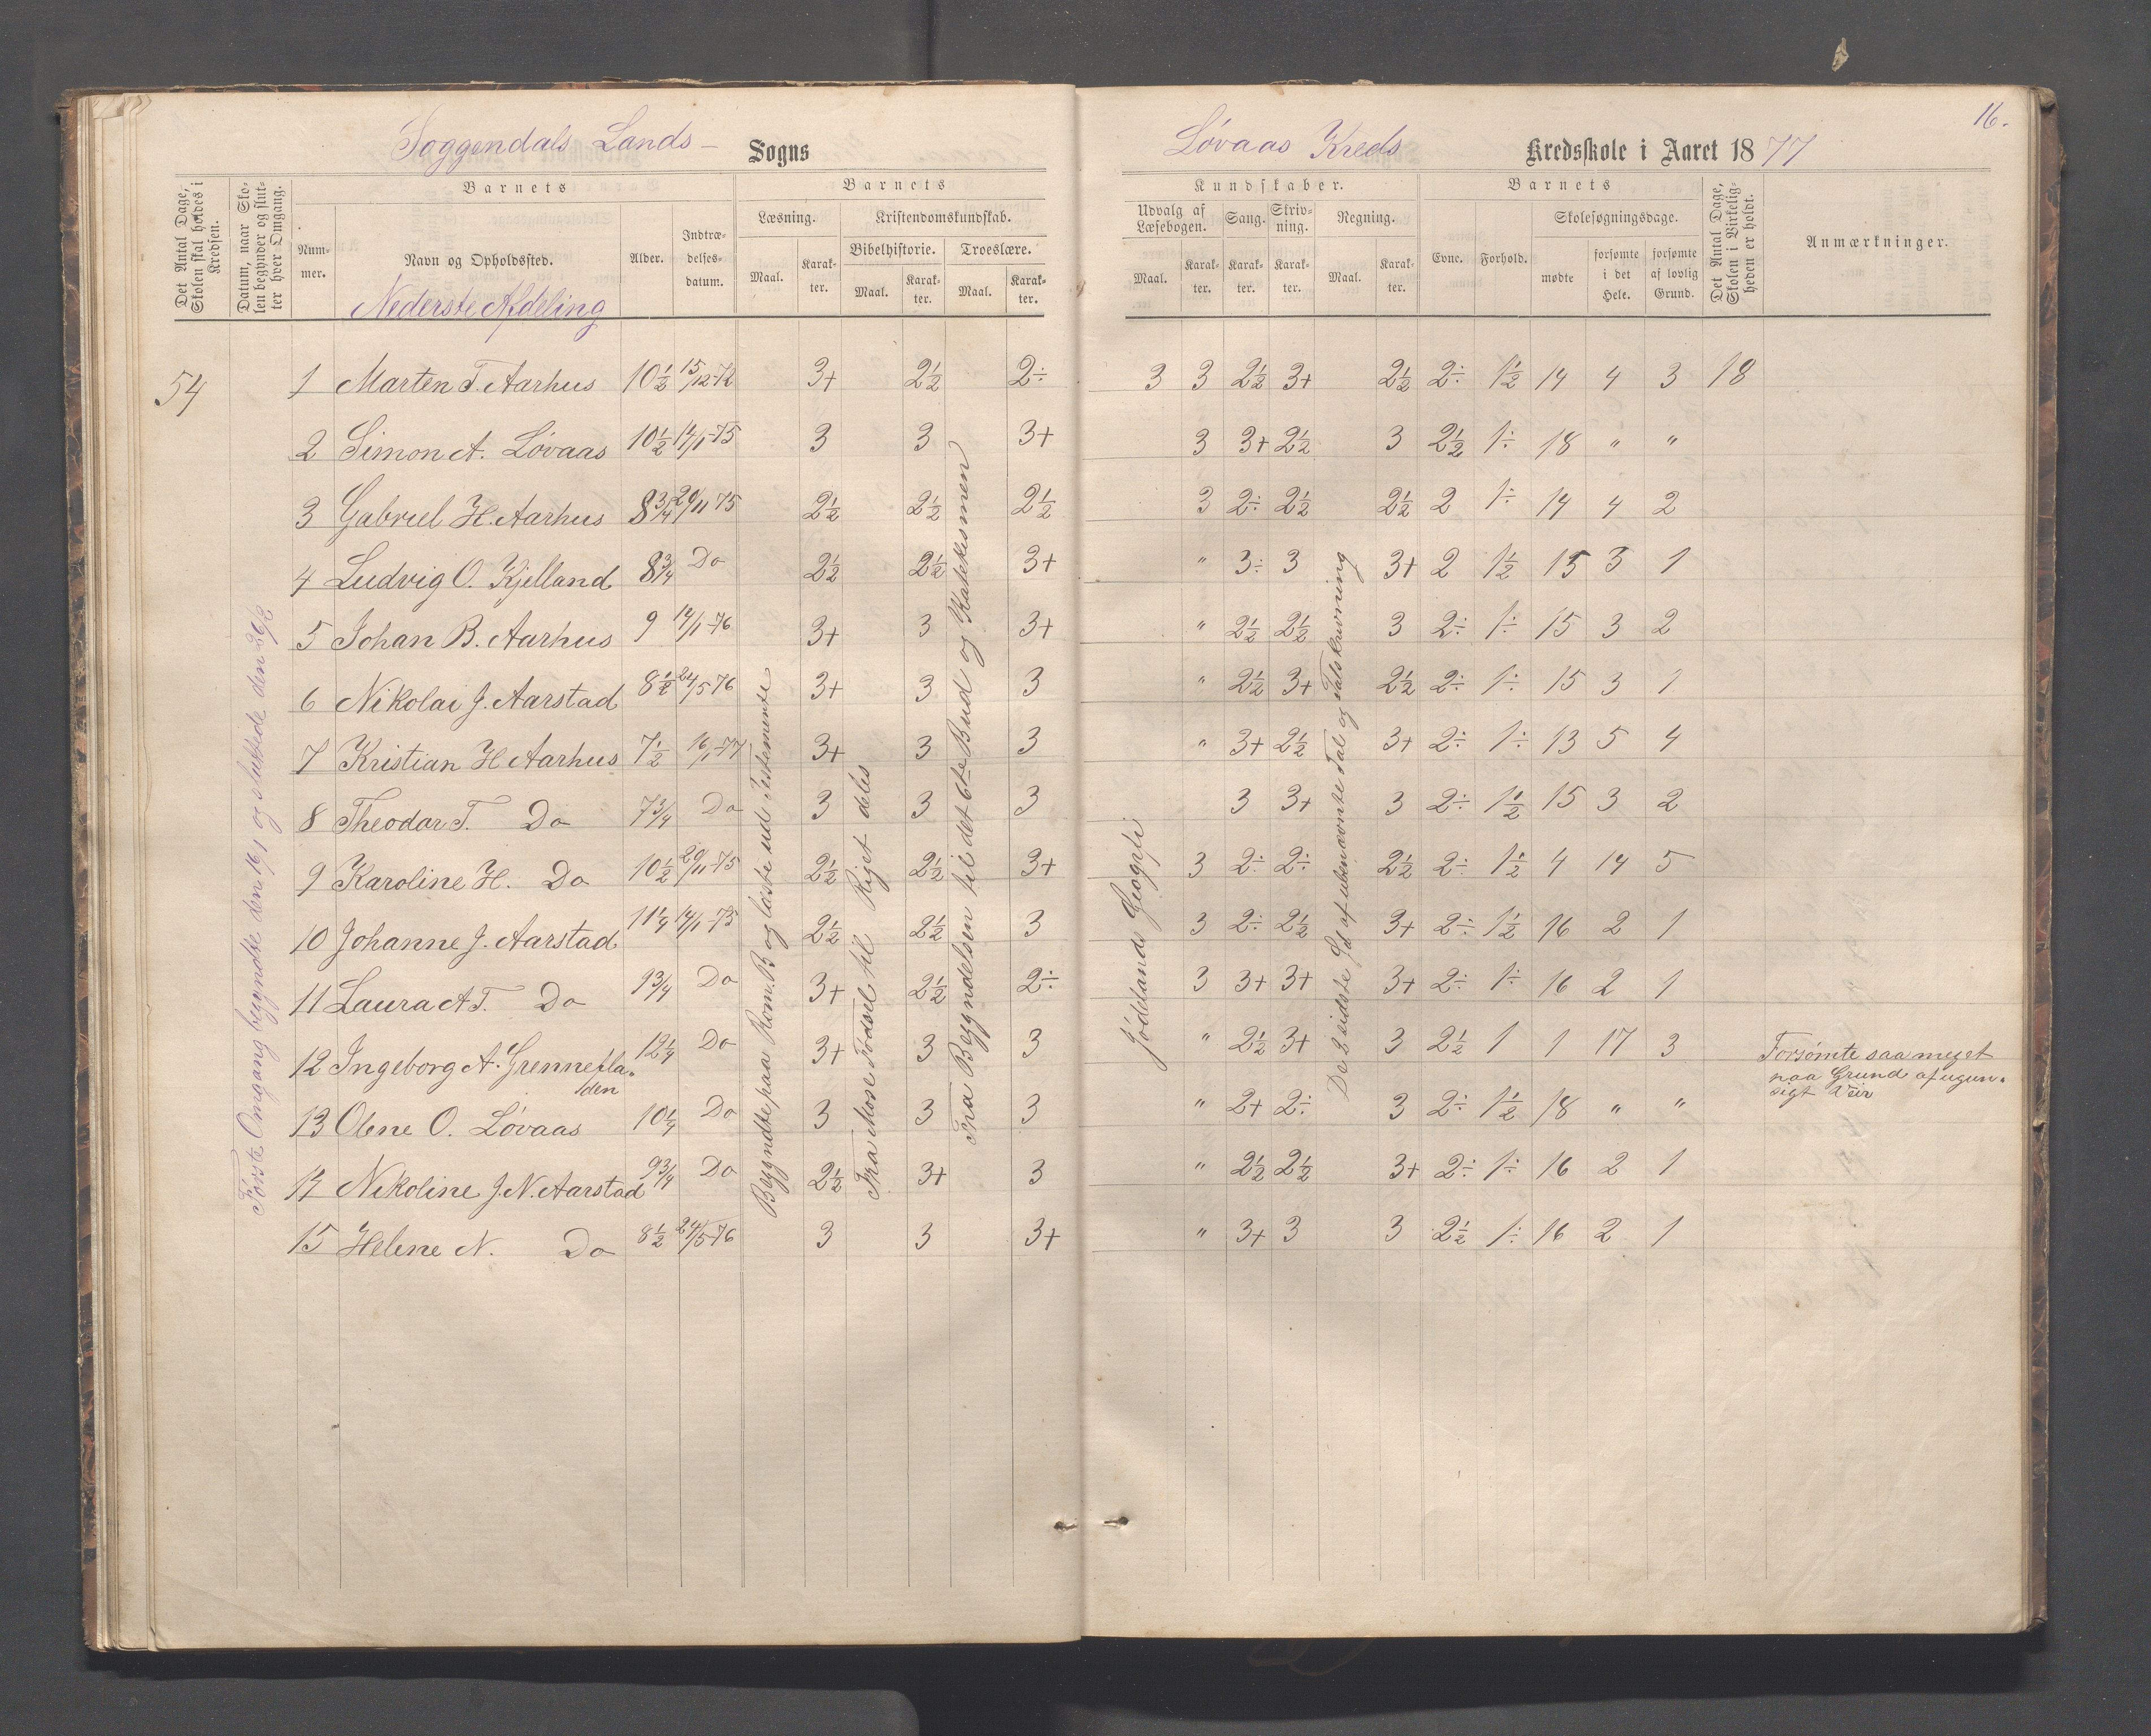 16.
Soggendals Lands- Sogns
Løvaas Kreds Kredsskole i Aaret 1877
Det Antal Dage, Skolen skal holdes i Kredsen.
Datum, naar Skolen begynder og slutter hver Omgang.
Barnets
Nummer.
Navn og Opholdssted.
Alder.
Indtrædelsesdatum.
Barnets
Læsning.
Maal.
Karakter.
Kristendomskundskab.
Bibelhistorie.
Maal.
Karakter.
Troeslære.
Maal.
Karakter.
Kundskaber.
Udvalg af Læsebogen.
Maal.
Karakter.
Sang.
Karakter.
Skrivning.
Karakter.
Regning.
Maal.
Karakter.
Barnets
Evne.
Forhold.
Skolesøgningsdage.
mødte
forsømte i det Hele.
forsømte af lovlig Grund.
Det Antal Dage, Skolen i Virkeligheden er holdt.
Anmærkninger.
Nederste Afdeling
54
1 Marten T. Aarhus 10½ 15/12-72 3+ 2½ 2÷ 3 3 2½ 3+ 2½ 2÷ 1½ 14 4 3 18
2 Simon A. Løvaas 10½ 14/1-75 3 3 3+ 3 3+ 2½ 3 2½ 1÷ 18 " "
3 Gabriel H. Aarhus 8¾ 29/11 75 2½ 2½ 2½ 3 2÷ 2½ 2½ 2 1÷ 14 4 2
4 Ludvig O. Kjelland 8¾ Do 2½ 2½ 3+ " 3÷ 3 3+ 2 1½ 15 3 1
5 Johan B. Aarhus 9 14/1-76 3+ 3 3+ " 2½ 2½ 3 2÷ 1÷ 15 3 2
6 Nikolai J. Aarstad 8½ 24/5 76 3+ 3 3 " 2½ 3+ 2½ 2÷ 1÷ 15 3 1
7 Kristian H Aarhus 7½ 16/1-77 3+ 3 3 " 3+ 2½ 3+ 2÷ 1÷ 13 5 4
8 Theodor T. Do 7¾ Do 3 3 3 3 3+ 3 2÷ 1½ 15 3 2
9 Karoline H. Do 10½ 29/11-75 2½ 2½ 3+ 3 2÷ 2÷ 2½ 2÷ 1½ 4 14 5
10 Johanne J. Aarstad 11¼ 14/1-75 2½ 2½ 3 3 2÷ 2½ 3+ 2÷ 1½ 16 2 1
11 Laura A T. Do 9¾ Do 3+ 2½ 2÷ 3 3+ 3+ 3+ 2÷ 1÷ 16 2 1
12 Ingeborg A. Grennefla- 12¼ Do 3+ 3 3 " 2½ 3+ 3 2½ 1 1 17 3 Forsømte saa meget
den
paa Grund af ugun-
sigt Veir
13 Olene O. Løvaas 10¼ Do 3 3 3 " 2+ 2÷ 3 2÷ 1½ 18 " "
14 Nikoline J. N. Aarstad 9¾ Do 2½ 3+ 3 " 2½ 2½ 3+ 2÷ 1÷ 16 2 1
15 Helene N. Do 8½ 24/5-76 3 3 3+ " 3+ 3 3 2½ 1÷ 16 2 1
Første Omgang begyndte den 16/1 og sluttede den 26/2
Begyndte paa Rom. B og læste ud Testemente
Fra Mose Fødsel til Riget deles
Fra Begyndelsen til det 6te Bud og Katekismen
Jødelands Geografi
De 2 sidste Gd af ubenævnte Tal og Talskrivning